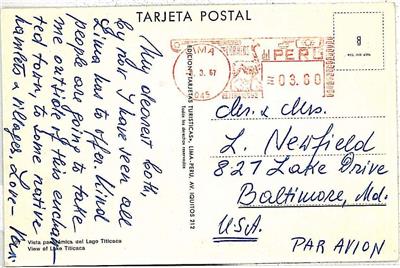 TARJETA POSTAL
My dearest both,
by now I have seen all
Lima has to offer. Kind
people are going to take
me outside of this enchan-
ted town, to some native
hamlets & villages, Love –
Vista panorámica del Lago Titicaca
View of Lake Titicaca
EDICION "TARJETAS TURISTICAS", LIMA-PERU, AV. IQUITOS 212
Todos los derechos reservados
LIMA
3. 67
PERU
03.60
8
Mr. & Mrs.
L. Newfield
827 Lake Drive
Baltimore, Md.
USA.
PAR AVION